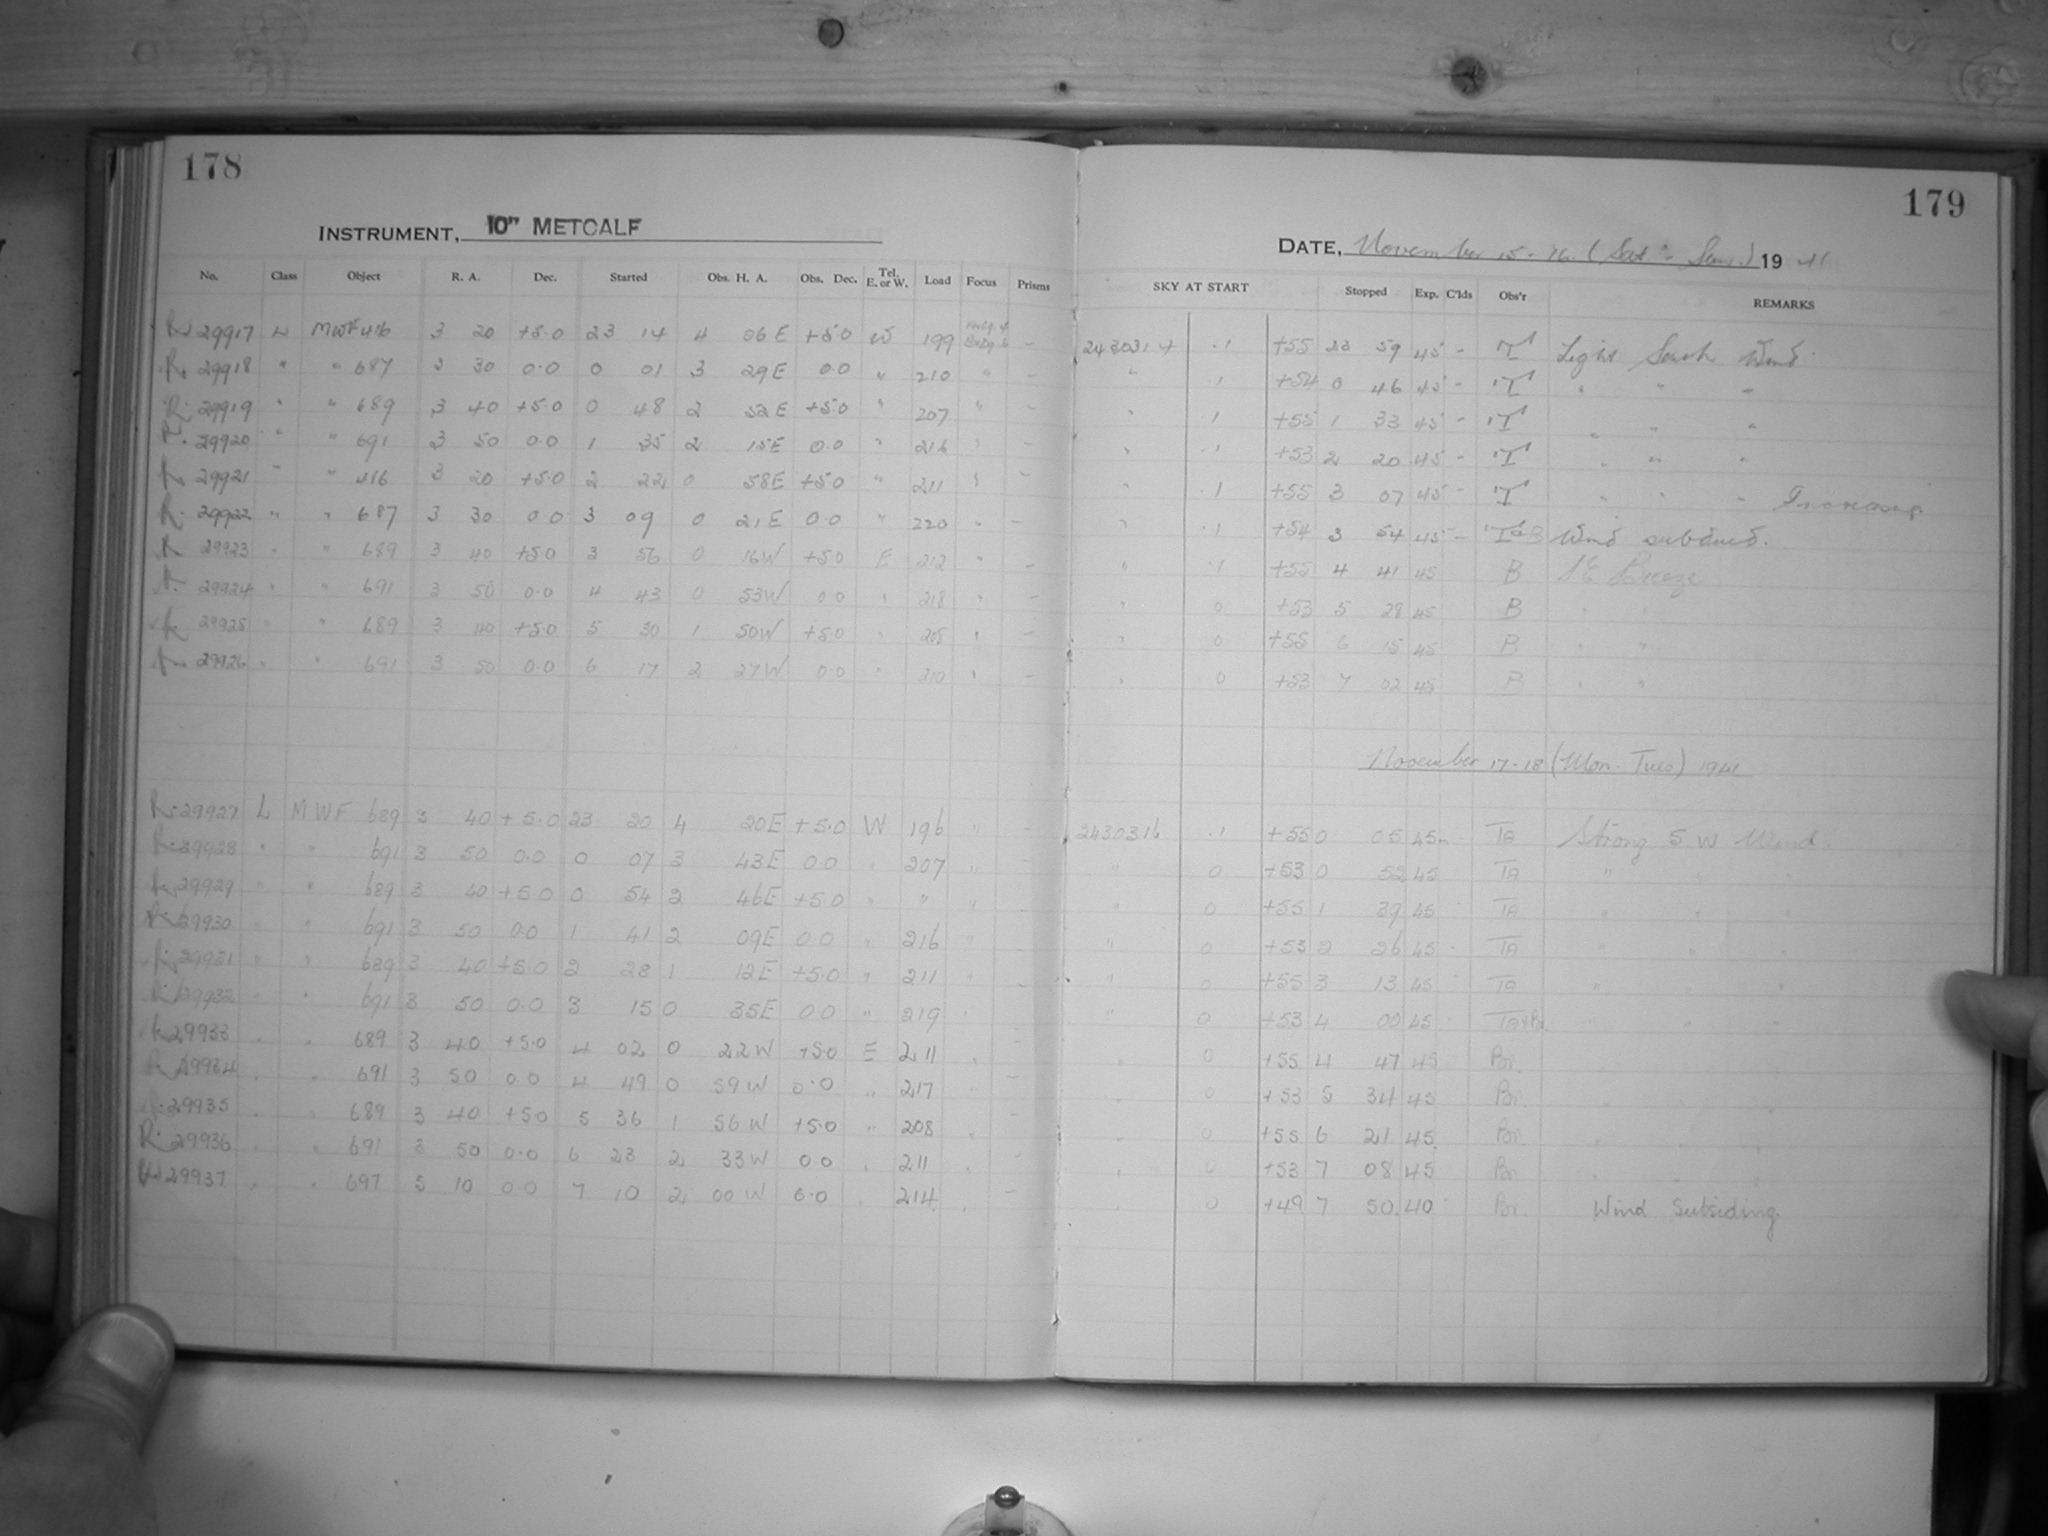 178
179
INSTRUMENT, 10" METCALF
DATE, November 15-16. (Sat - Sun.) 1941
No. Class Object R. A. Dec. Started Obs. H. A. Obs. Dec. Tel. E. or W. Load Focus Prisms SKY AT START Stopped Exp. C'lds Obs'r REMARKS
29917 L MWF 416 3 20 +5.0 23 14 4 06 E +5.0 W 199 - 2430314 .1 +55 23 59 45 - T Light South Wind.
29918 " " 687 3 30 0.0 0 01 3 29 E 0.0 " 210 " - " .1 +54 0 46 45 - T " " "
29919 " " 689 3 40 +5.0 0 48 2 52 E +5.0 " 207 " - " .1 +55 1 33 45 - T " " "
29920 " " 691 3 50 0.0 1 35 2 15 E 0.0 " 216 " - " .1 +53 2 20 45 - T " " "
29921 " " 416 3 20 +5.0 2 22 0 58 E +5.0 " 211 " - " .1 +55 3 07 45 - T " " " Increasing
29922 " " 687 3 30 0.0 3 09 0 21 E 0.0 " 220 " - " .1 +54 3 54 45 - T&B Wind subdued.
29923 " " 689 3 40 +5.0 3 56 0 16 W +5.0 E 212 " - " .1 +55 4 41 45 B SE Breeze
29924 " " 691 3 50 0.0 4 43 0 53 W 0.0 " 218 " - " 0 +53 5 28 45 B " "
29925 " " 689 3 40 +5.0 5 30 1 50 W +5.0 " 205 " - " 0 +55 6 15 45 B " "
29926 " " 691 3 50 0.0 6 17 2 27 W 0.0 " 210 " - " 0 +53 7 02 45 B " "
November 17-18 (Mon. Tues) 1941
29927 L MWF 689 3 40 +5.0 23 20 4 20 E +5.0 W 196 " - 2430316 .1 +55 0 05 45m Ta Strong S W Wind.
29928 " " 691 3 50 0.0 0 07 3 43 E 0.0 " 207 " - " 0 +53 0 52 45 Ta " " "
29929 " " 689 3 40 +5.0 0 54 2 46 E +5.0 " " " - " 0 +55 1 39 45 Ta " " "
29930 " " 691 3 50 0.0 1 41 2 09 E 0.0 " 216 " - " 0 +53 2 26 45 Ta " " "
29931 " " 689 3 40 +5.0 2 28 1 12 E +5.0 " 211 " - " 0 +55 3 13 45 Ta " " "
29932 " " 691 3 50 0.0 3 15 0 35 E 0.0 " 219 " - " 0 +53 4 00 45 Ta&Br " " "
29933 " " 689 3 40 +5.0 4 02 0 22 W +5.0 E 211 " - " 0 +55 4 47 45 Br.
29934 " " 691 3 50 0.0 4 49 0 59 W 0.0 " 217 " - " 0 +53 5 34 45 Br.
29935 " " 689 3 40 +5.0 5 36 1 56 W +5.0 " 208 " - " 0 +55 6 21 45 Br.
29936 " " 691 3 50 0.0 6 23 2 33 W 0.0 " 211 " - " 0 +53 7 08 45 Br.
29937 " " 697 5 10 0.0 7 10 2 00 W 0.0 " 214 " - " 0 +49 7 50 40 Br. Wind Subsiding.